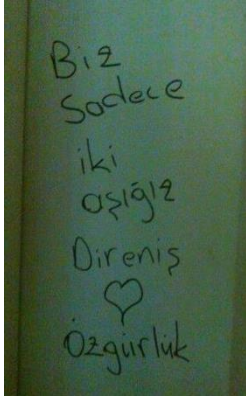 Biz
Sadece
iki
aşığız
Direniş
♡
Özgürlük